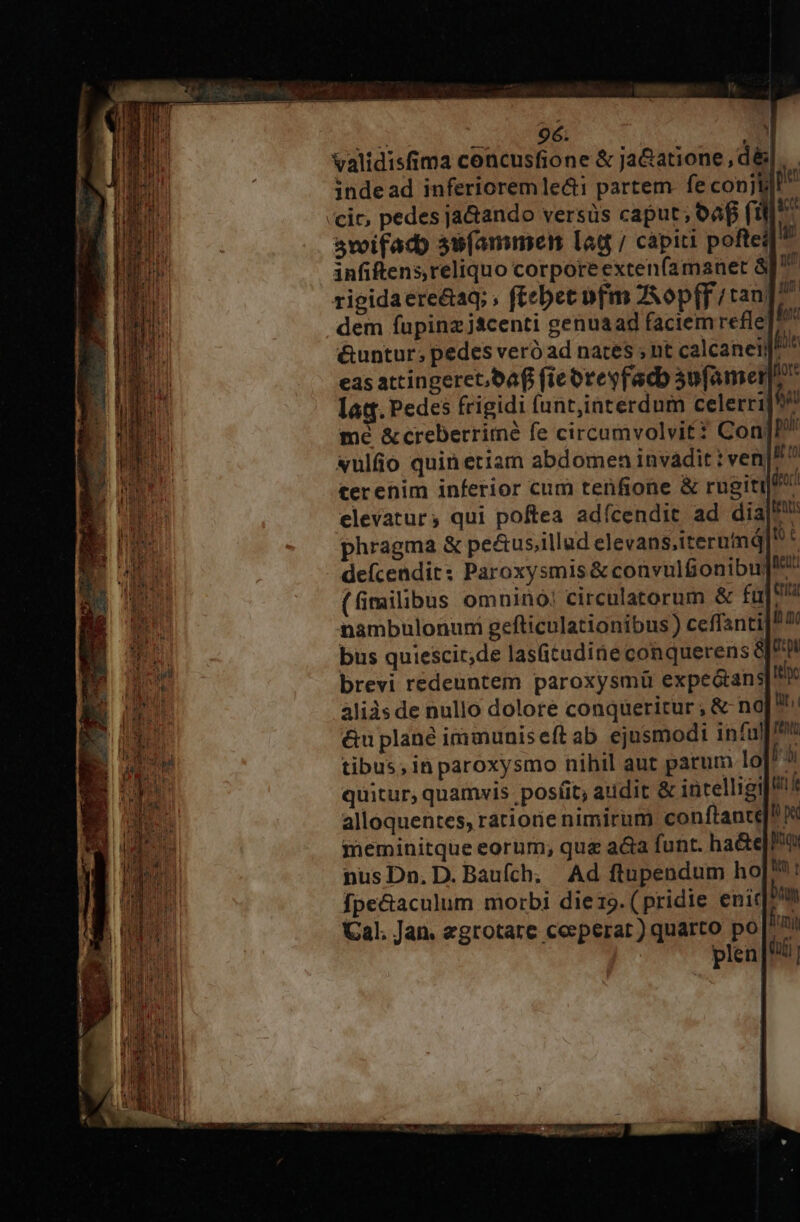 96.
validisſima concusſione & jactatione, dé
inde ad inferiorem lecti partem ſe conji
cit, pedes jactando versùs caput, daß ſi
zwifach zuſammen lag / capiti poſtea
inſiſtens, reliquo corpore extenſa manet &
rigida erectaq;, ſtehet ufm Kopff / tan
dem ſupinæ jacenti genua ad faciem refle
ctuntur, pedes verò ad nates, ut calcanei
eas attingeret, daß ſie dreyfach zuſamen
lag. Pedes frigidi ſunt, interdum celerri
mè & creberrimè ſe circumvolvit: Con
vulſio quin etiam abdomen invadit: ven
ter enim inferior cum tenſione & rugitu
elevatur, qui poſtea adſcendit ad dia
phragma & pectus, illud elevans, iterumq́
deſcendit: Paroxysmis & convulſionibus
(ſimilibus omnino circulatorum & fu
nambulonum geſticulationibus) ceſſanti
bus quiescit, de lasſitudine conquerens &
brevi redeuntem paroxysmũ expectans
aliàs de nullo dolore conqueritur, & no
ctu planè immunis eſt ab ejusmodi inſul
tibus, in paroxysmo nihil aut parum lo
quitur, quamvis posſit, audit & intelligit
alloquentes, ratione nimirum conſtante
meminitque eorum, quæ acta ſunt. hacte
nus Dn. D. Bauſch. Ad ſtupendum ho
ſpectaculum morbi die 19. (pridie enim
Cal. Jan. ægrotare cœperat) quarto po
plen